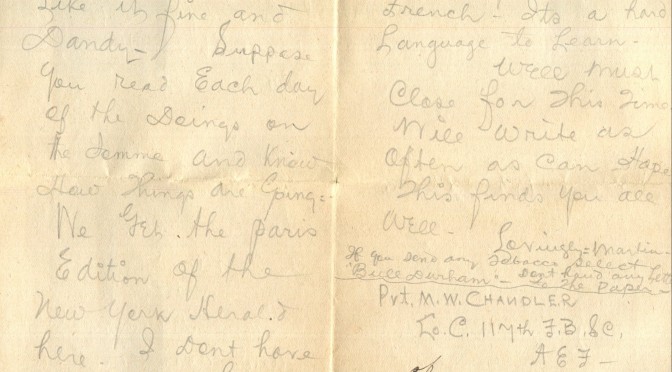 Like it fine and
Dandy - Suppose
you read Each day
of the Doings on
the Somme and Know
How Things are Going =
We Get the paris
Edition of the
New York Herald
here. I Dont have
French! Its a hard
Language to Learn -
Well must
Close for This Time
Will write as
Often as can Hope
This finds you all
Well -
Lovingly = Martin -
If you send any Tobacco select
"Bull Durham" - Dont hand any
to The Paper
Pvt. M. W. CHANDLER
Co. C. 117th F. B. S.C.
A E F -
of